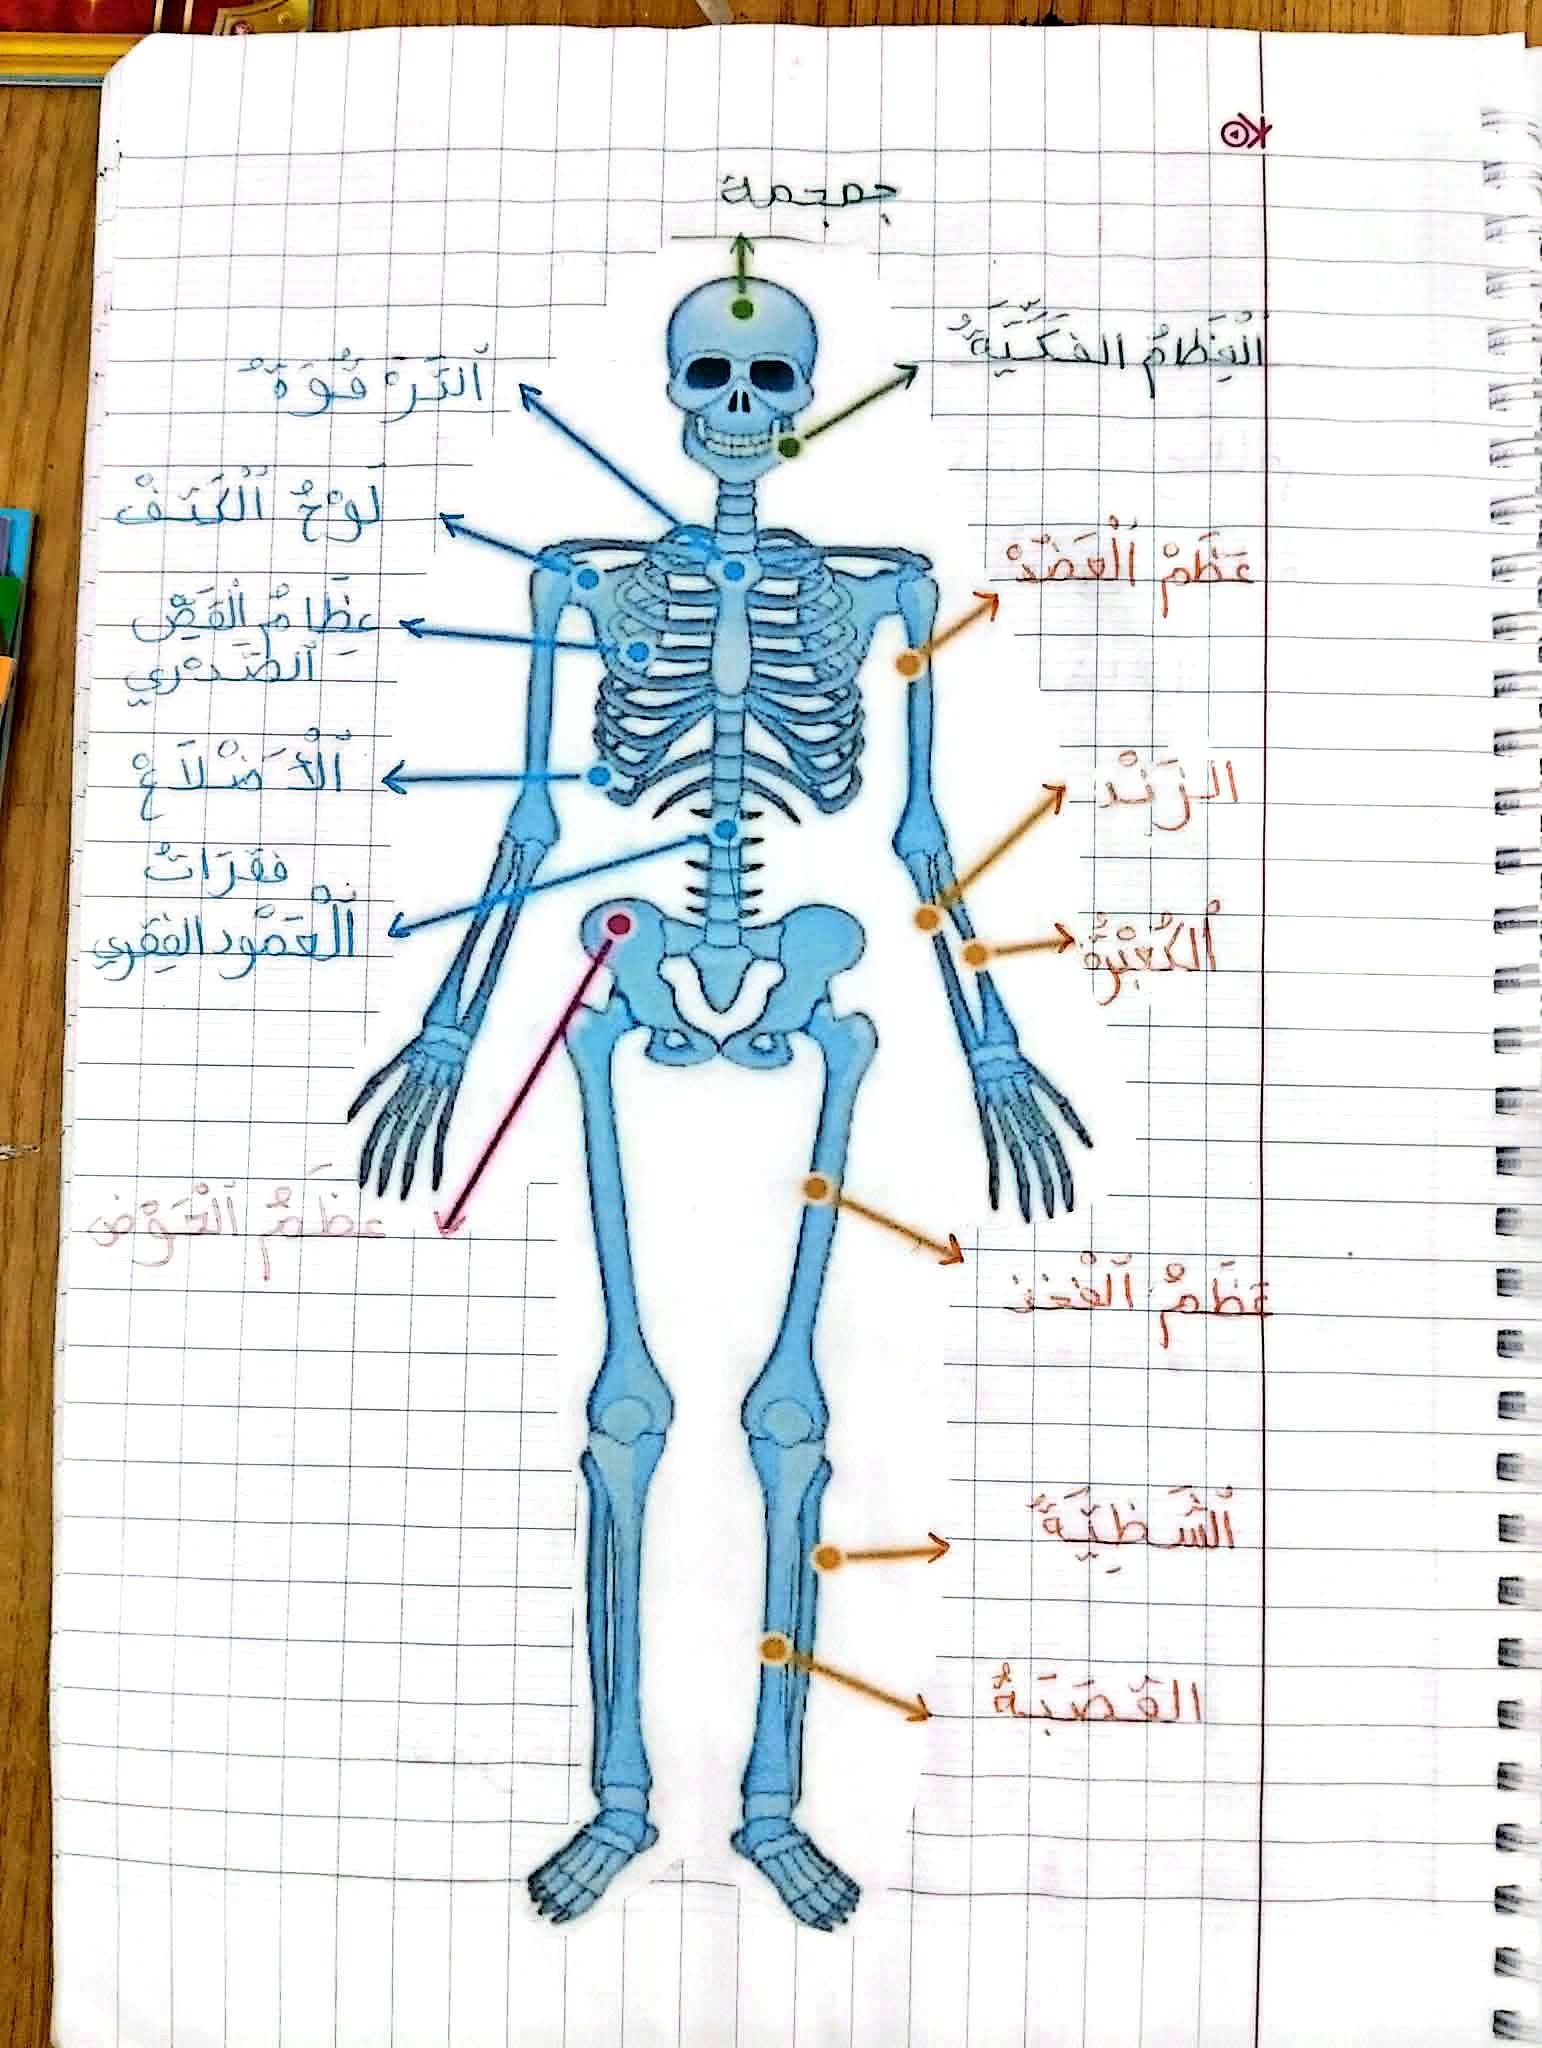 جمجمة
اَلْعِظَامُ الفَكِّيَّةُ
اَلتَّرْقُوَةُ
لَوْحُ اَلْكَتَفْ
عَظَمْ اَلْعَضُدْ
عِظَامُ اَلْقَفَصْ
اَلصَّدْرِي
اَلْأَضْلَاعْ
الزَنْد
فقَرَاتُ
اَلْعَمُود الفِقَري
اَلْكُعْبُرَةُ
عظَمُ اَلْحَوْض
عَظَمُ اَلْفْخذ
اَلشَّظِيَّةُ
القَصَبَةُ